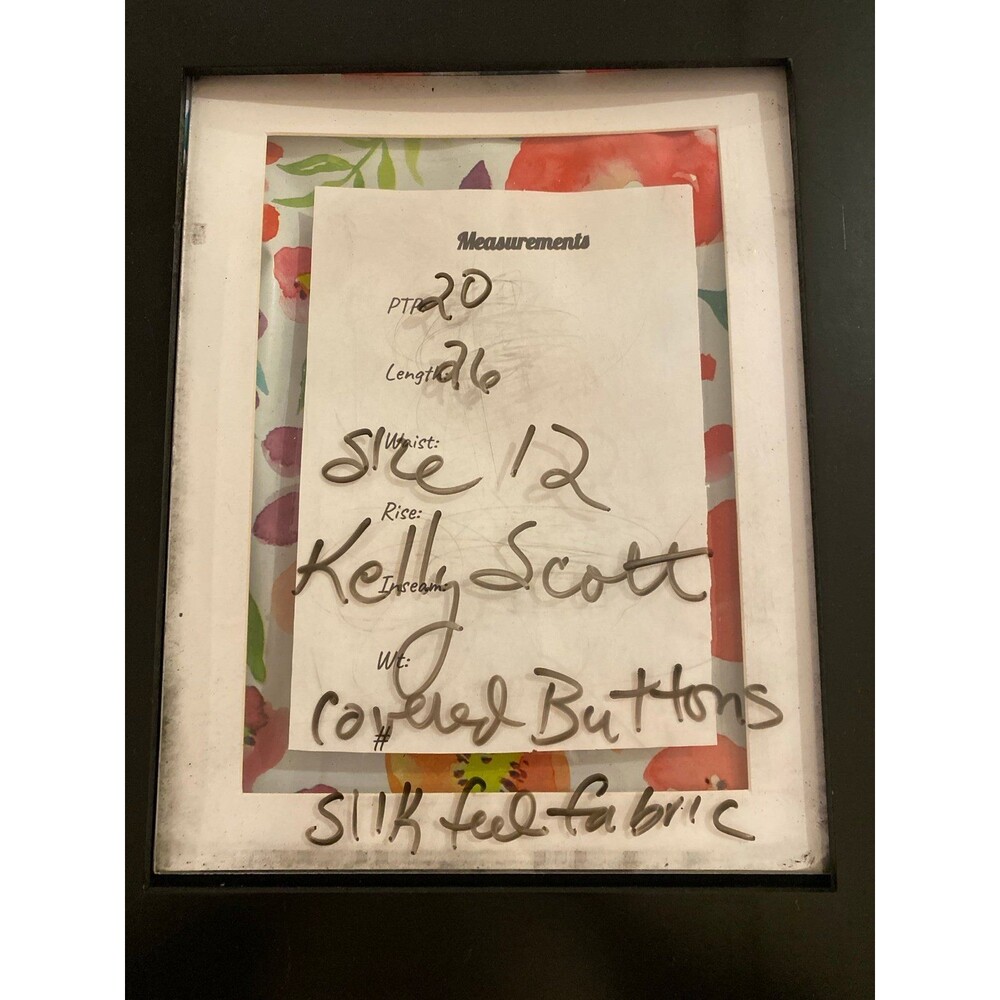 Measurements
PTP 20
Length: 26
Waist:
Size 12
Rise:
Kelly Scott
Inseam:
Wt:
Covered Buttons
#
Silk feel fabric